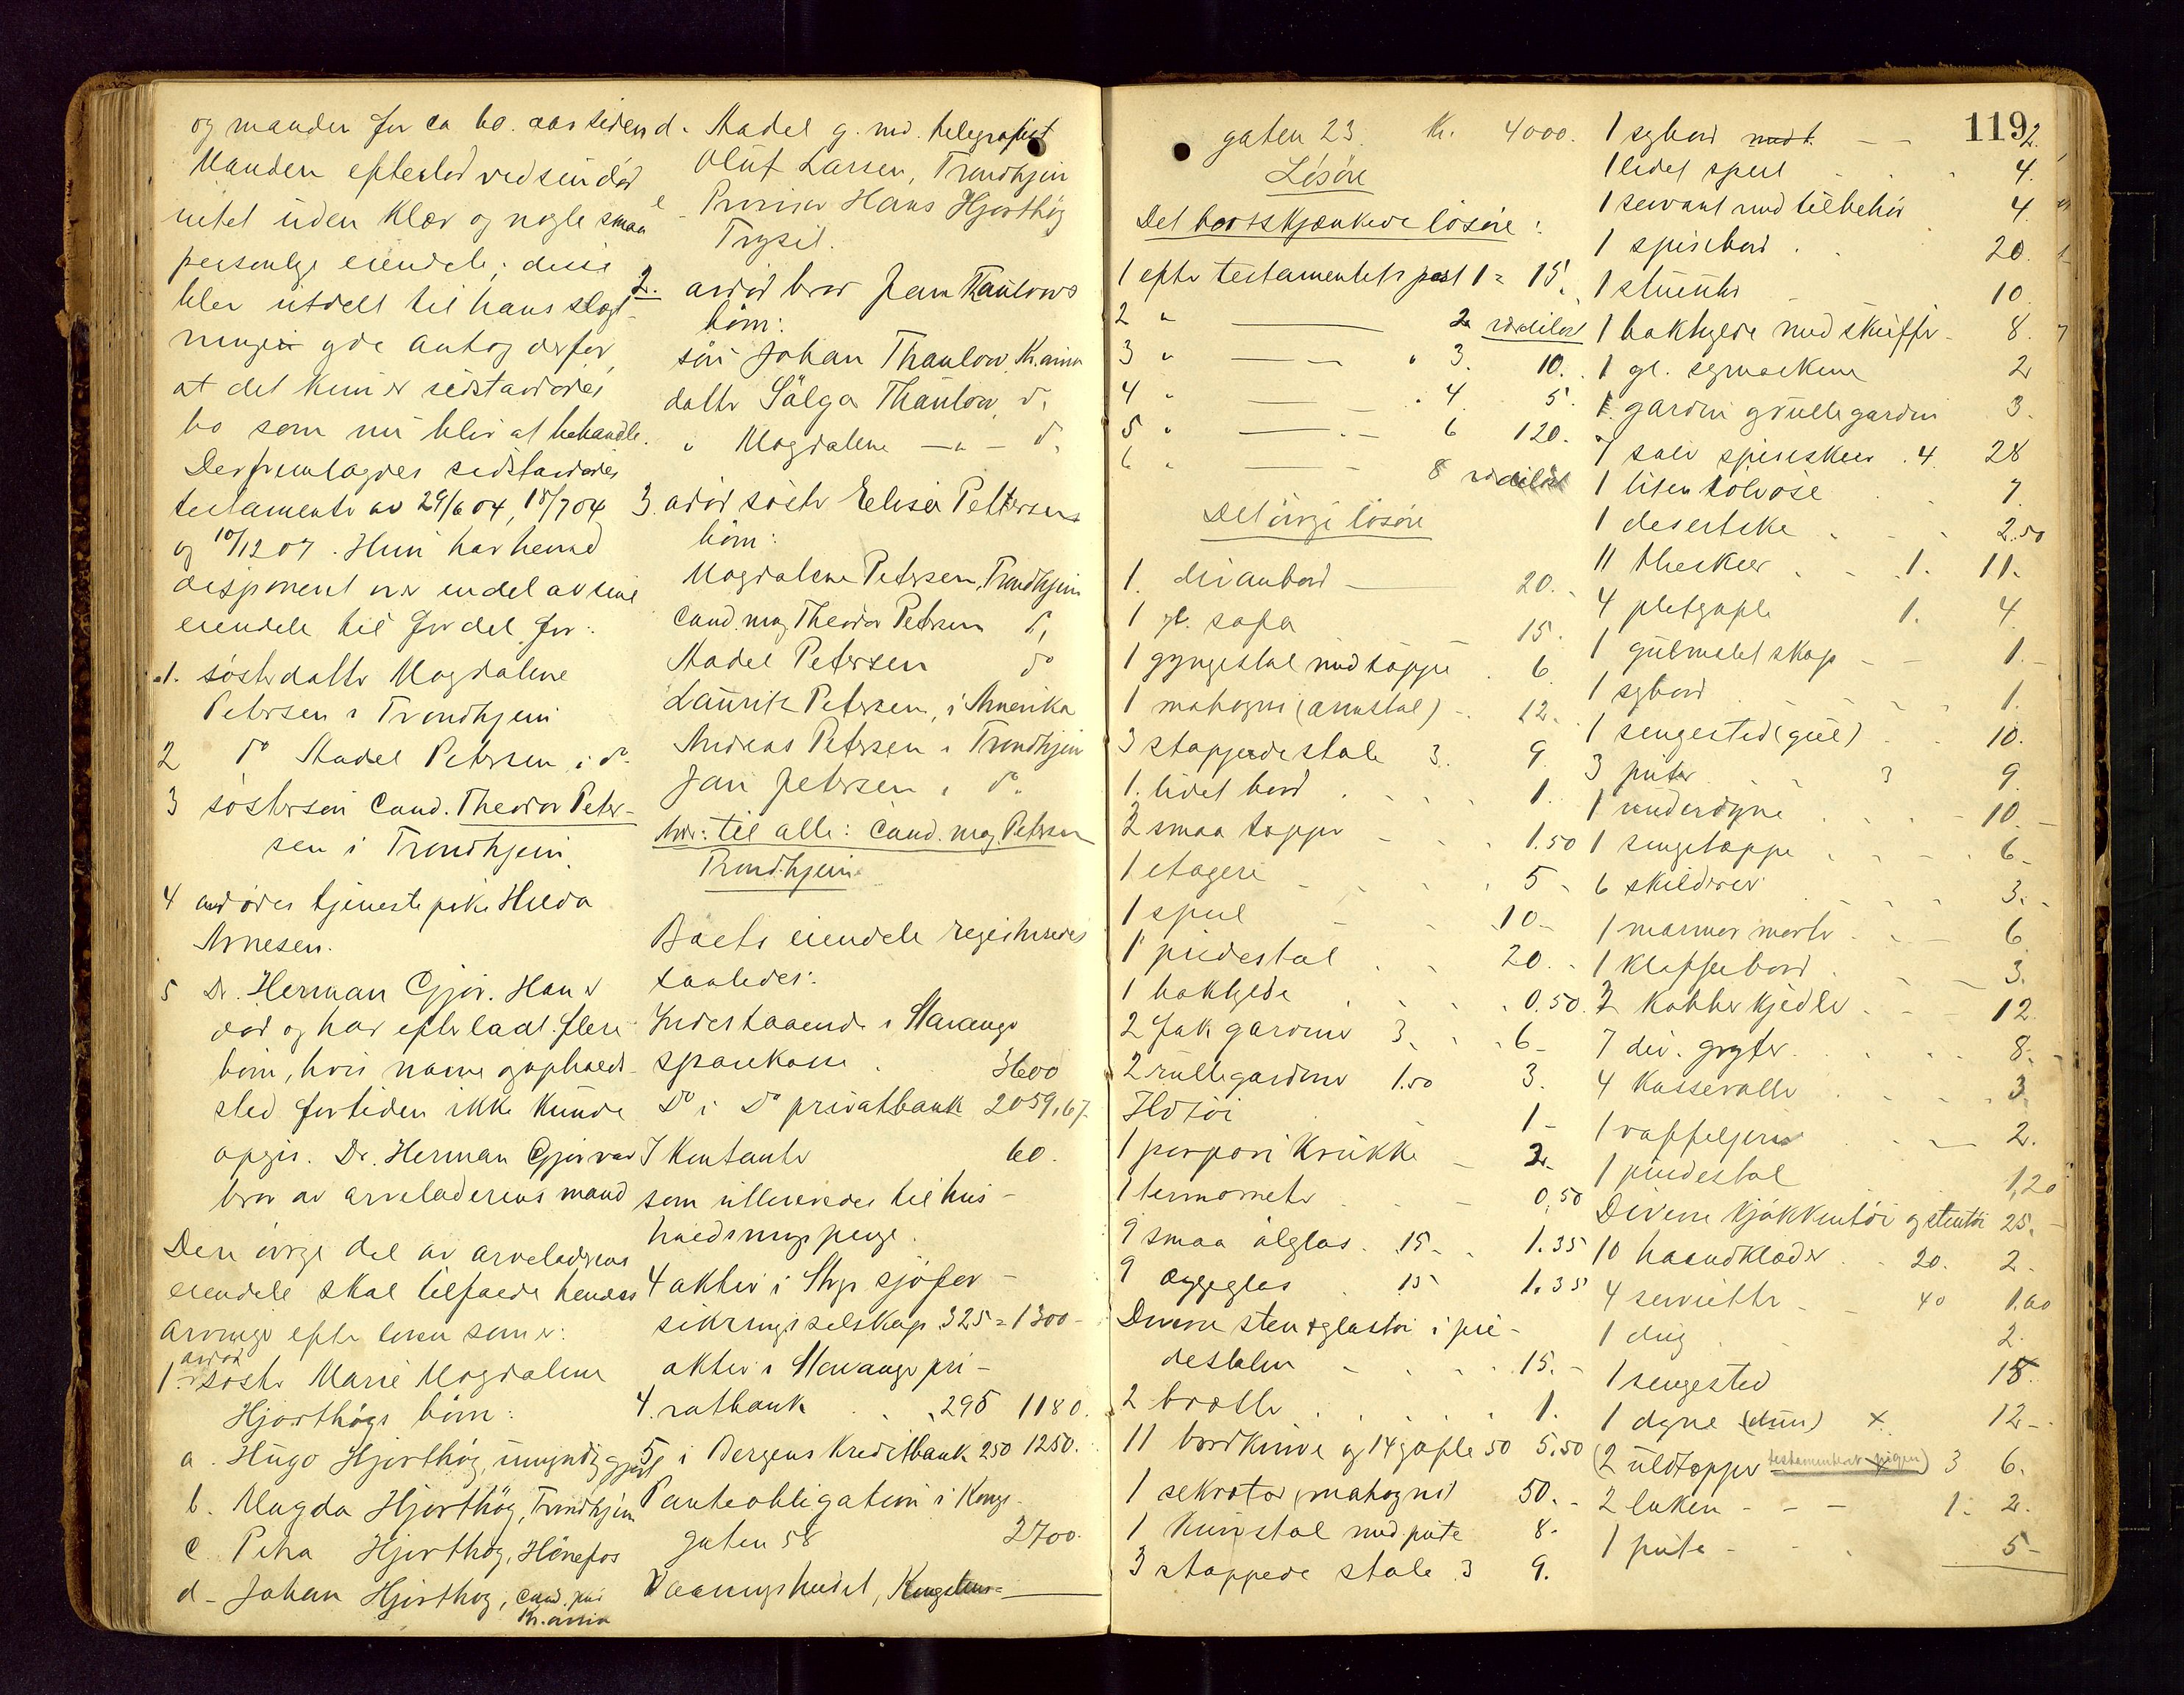 og manden for ca 60. aar siden
Manden efterlod ved sin död
intet uden klær og nogle smaa
personlige eiendele; disse
blev utdelt til hans slegt-
ninger og de antog derfor,
at det kun er sidstavdødes
bo som nu blir at behandle.
Der fremlagdes sidstavdødes
testamente av 29/6 04, 18/7 04
og 10/12 07. Hun har herved
disponert over endel av sine
eiendele til fordel for:
1. søsterdatter Magdalene
Petersen i Trondhjem
2 do Aadel Petersen i do
3 søstersøn Cand. Theodor Peter-
sen i Trondhjem
4 avdødes tjenestepike Hilda
Arnesen.
5 Dr. Herman Gjør. Han er
død og har efterladt flere
börn, hvis navne og opholds-
sted for tiden ikke kunde
opgis. Dr. Herman Gjør var
bror av arveladerens mand
Den øvrige del av arveladerens
eiendele skal tilfalde hendes
arvinger efter loven som er:
1. avdød søster Marie Magdalene
Hjorthögs börn:
a. Hugo Hjorthög, umyndiggjort
b. Magda Hjorthög, Trondhjem
c. Petra Hjorthög, Hönefos
d - Johan Hjorthog, cand.
Kr.ania
d. Aadel g. m. telegrafist
Oluf Larsen, Trondhjem
e - Provisor Hans Hjorthög
Trysil.
2. avdød bror Jam Thaulows
börn:
sön Johan Thaulow, Kr.ania
datter Sälga Thaulow, do
" Magdalene — " — do
3. avdød söster Elisa Pettersens
börn:
Magdalene Petersen, Trondhjem
Cand. mag Theodor Petersen do
Aadel Petersen do
Lauritz Petersen, i Amerika
Andreas Petersen i Trondhjem
Jan Petersen i do
Adr: til alle: Cand. mag. Petersen
Trondhjem
Boets eiendele registreredes
saaledes:
Indestaaende i Stavanger
sparekasse . 3600
Do i Do privatbank 2059,67.
I Kontanter 60.
som utleveredes til hus-
holdningspenge.
4 aktier i Stvgr sjöfor-
sikringsselskap 325 = 1300 -
aktier i Stavanger pri-
4. vatbank . . 295 1180.
5 i Bergens Kreditbank 250 1250.
Panteobligation i Kongs-
gaten 58 2700.
Vaaningshuset, Kongstens-
gaten 23. Kr. 4000.
Lösöre
Det bortskjænkede lösöre:
1 efter testamentets post 1 = 15.
2 " — 2 værdilöst
3 " — " 3. 10.
4 " — " 4. 5.
5 " — 6 120.
6 " — 8 værdilöst
Det övrige lösöre
1. divanbord — 20.
1 gl. sofa 15.
1 gyngestol med tæppe . 6.
1 mahogni (armstol) - 12.
3 stoppede stole 3. 9.
1. lidet bord . . . 1.
2 smaa tæpper - . . 1.50
1 etagere - . . 5 -
1 speil - . 10 -
1 piedestal . . 20. -
1 bokhylde . . . 0.50.
2 fak gardiner 3. . . 6 -
2 rullegardiner 1.50 3.
Ildtöi 1 -
1 porpori krukke - 2.
1 termometer . . - 0,50
9 smaa ölglas . 15 - . 1.35
9 æggeglas . 15 1.35
Diverse sten & glastöi i pie-
destalen - . . . 15. -
2 brætter . . . . . 1.
11 bordknive og 14 gafle 50 5.50
1 sekretær, mahogni 50. -
1 kurvstol med pute 8.
3 stoppede stole . 3 9.
119
1 sybord - - 2.
1 lidet speil . . . 4.
1 servant med tilbehör 4.
1 spisebord . . 20.
1 stueuhr - 10.
1 bokhylde med skuffer - 8.
1 gl. symaskine 2
1. gardin g rullegardin 3.
7 sölv spiseskeer . 4. 28
1 liten 7.
1 desertske . - . 2.50
11 theskeer . . - . 1. 11.
4 pletgafle 1. 4.
1 gulmalet skap - - 1. -
1 sybord . . . 1.
1 sengested (gul) . . 10.
3 puter . . . 3 9.
1 underdyne . . . - 10. -
1 sengetæppe . . - . 6. -
6 skilderier . . . 3. -
1 marmor morter . - - 6.
1 klaffebord . - - 3.
2 kobberkjedler . - - 12.
7 div. gryter . . . 8. -
4 Kasseroller . . - . 3.
1 vaffeljern . . - 2.
1 piedestal . . 1,20
Diverse kjökkentöi og stentöi 25. -
10 haandklæder . . 20. 2 -
4 servietter - - 40 1.60
1 dug . . 2.
1 sengested 15.
1 dyne (dun) x 12 -
(2 uldtæpper testamenteret pigen) 3 6.
2 laken - - - 1. 2.
1 pute - - . 5 -